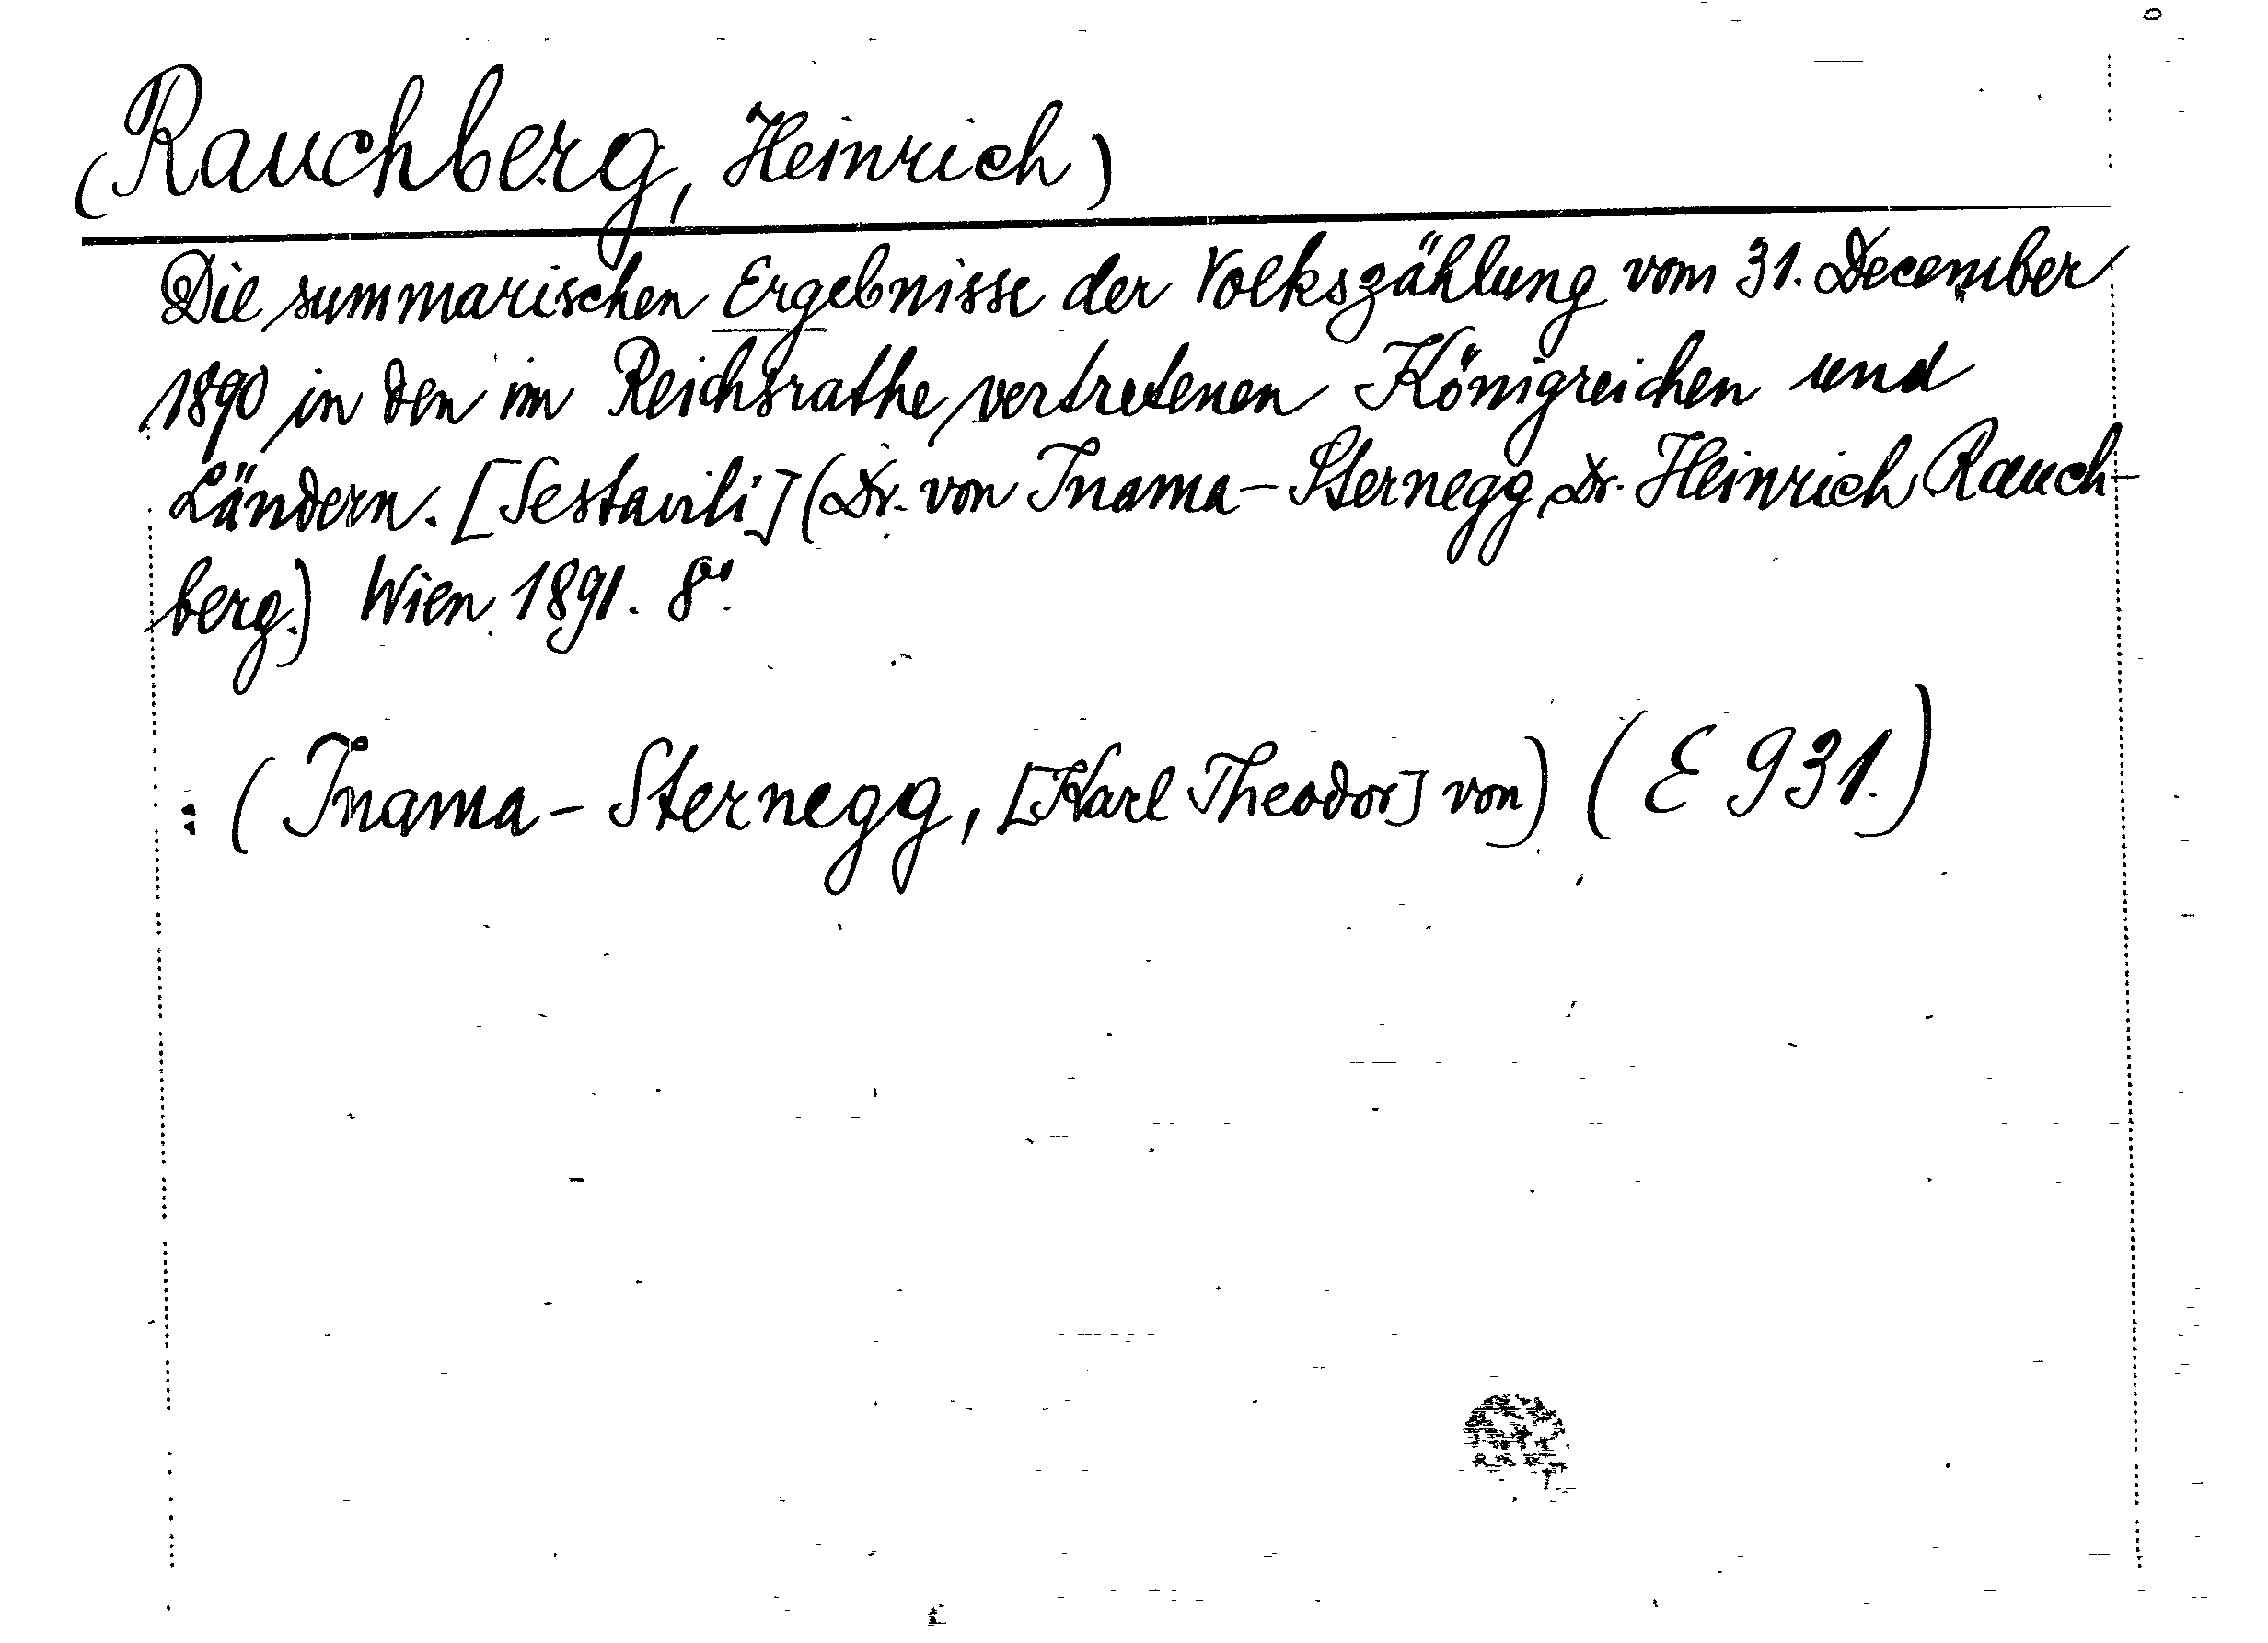 (Rauchberg, Heinrich)
Die summarischen Ergebnisse der Volkszählung vom 31. December
1890 in den im Reichsrathe vertretenen Königreichen und
Ländern. [Sestavili] (Dr. von Inama-Sternegg, Dr. Heinrich Rauch-
berg.) Wien 1891. 8º.
: (Inama-Sternegg, [Karl Theodor] von) (E 931.)